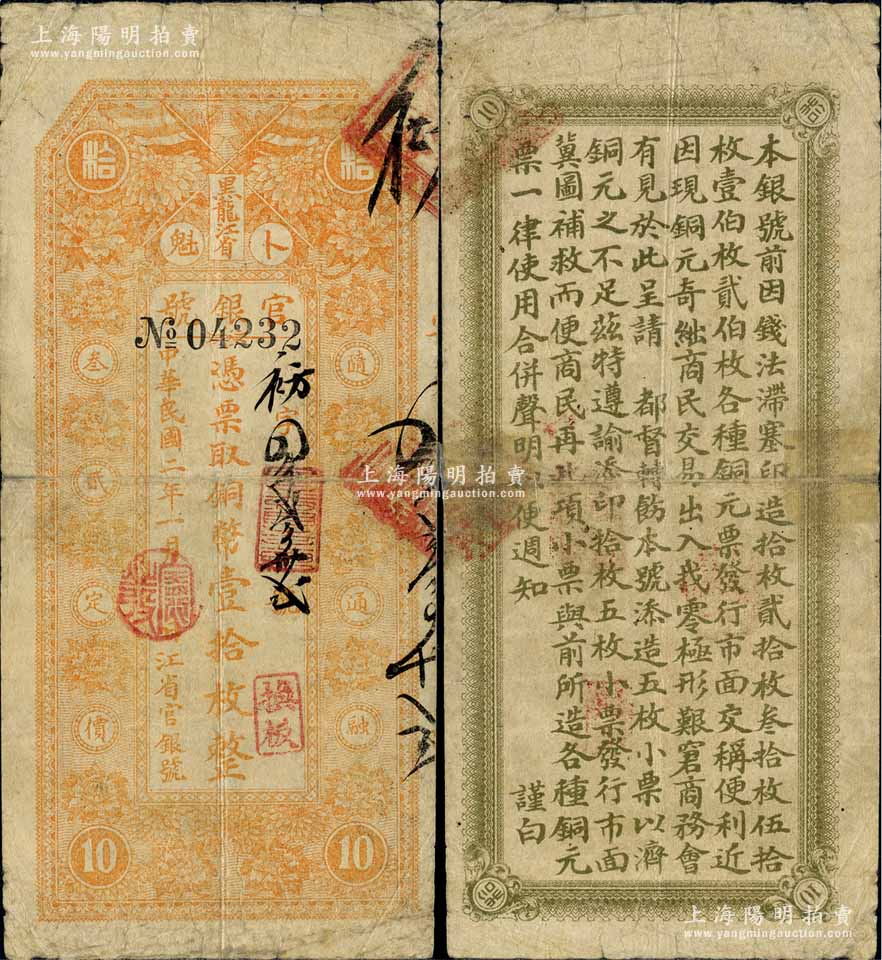 上海陽明拍賣
www.yangmingauction.com
拾
拾
黑龍江省
卜魁
官銀號
№ 04232
憑票取銅幣壹拾枚整
中華民國二年一月
江省官銀號
隨
通
融
叁
貳
定
價
換板
10
10
上海陽明拍賣
www.yangmingauction.com
上海陽明拍賣
www.yangmingauction.com
10
拾
本銀號前因錢法滯塞印造拾枚貳拾枚叁拾枚伍拾
枚壹伯枚貳伯枚各種銅元票發行市面交稱便利近
因現銅元奇絀商民交易出入找零極形艱窘商務會
有見於此呈請 都督轉飭本號添造五枚小票以濟
銅元之不足茲特遵諭添印拾枚五枚小票發行市面
冀圖補救而便商民再此項小票與前所造各種銅元
票一律使用合併聲明以便週知
謹白
拾
10
上海陽明拍賣
www.yangmingauction.com